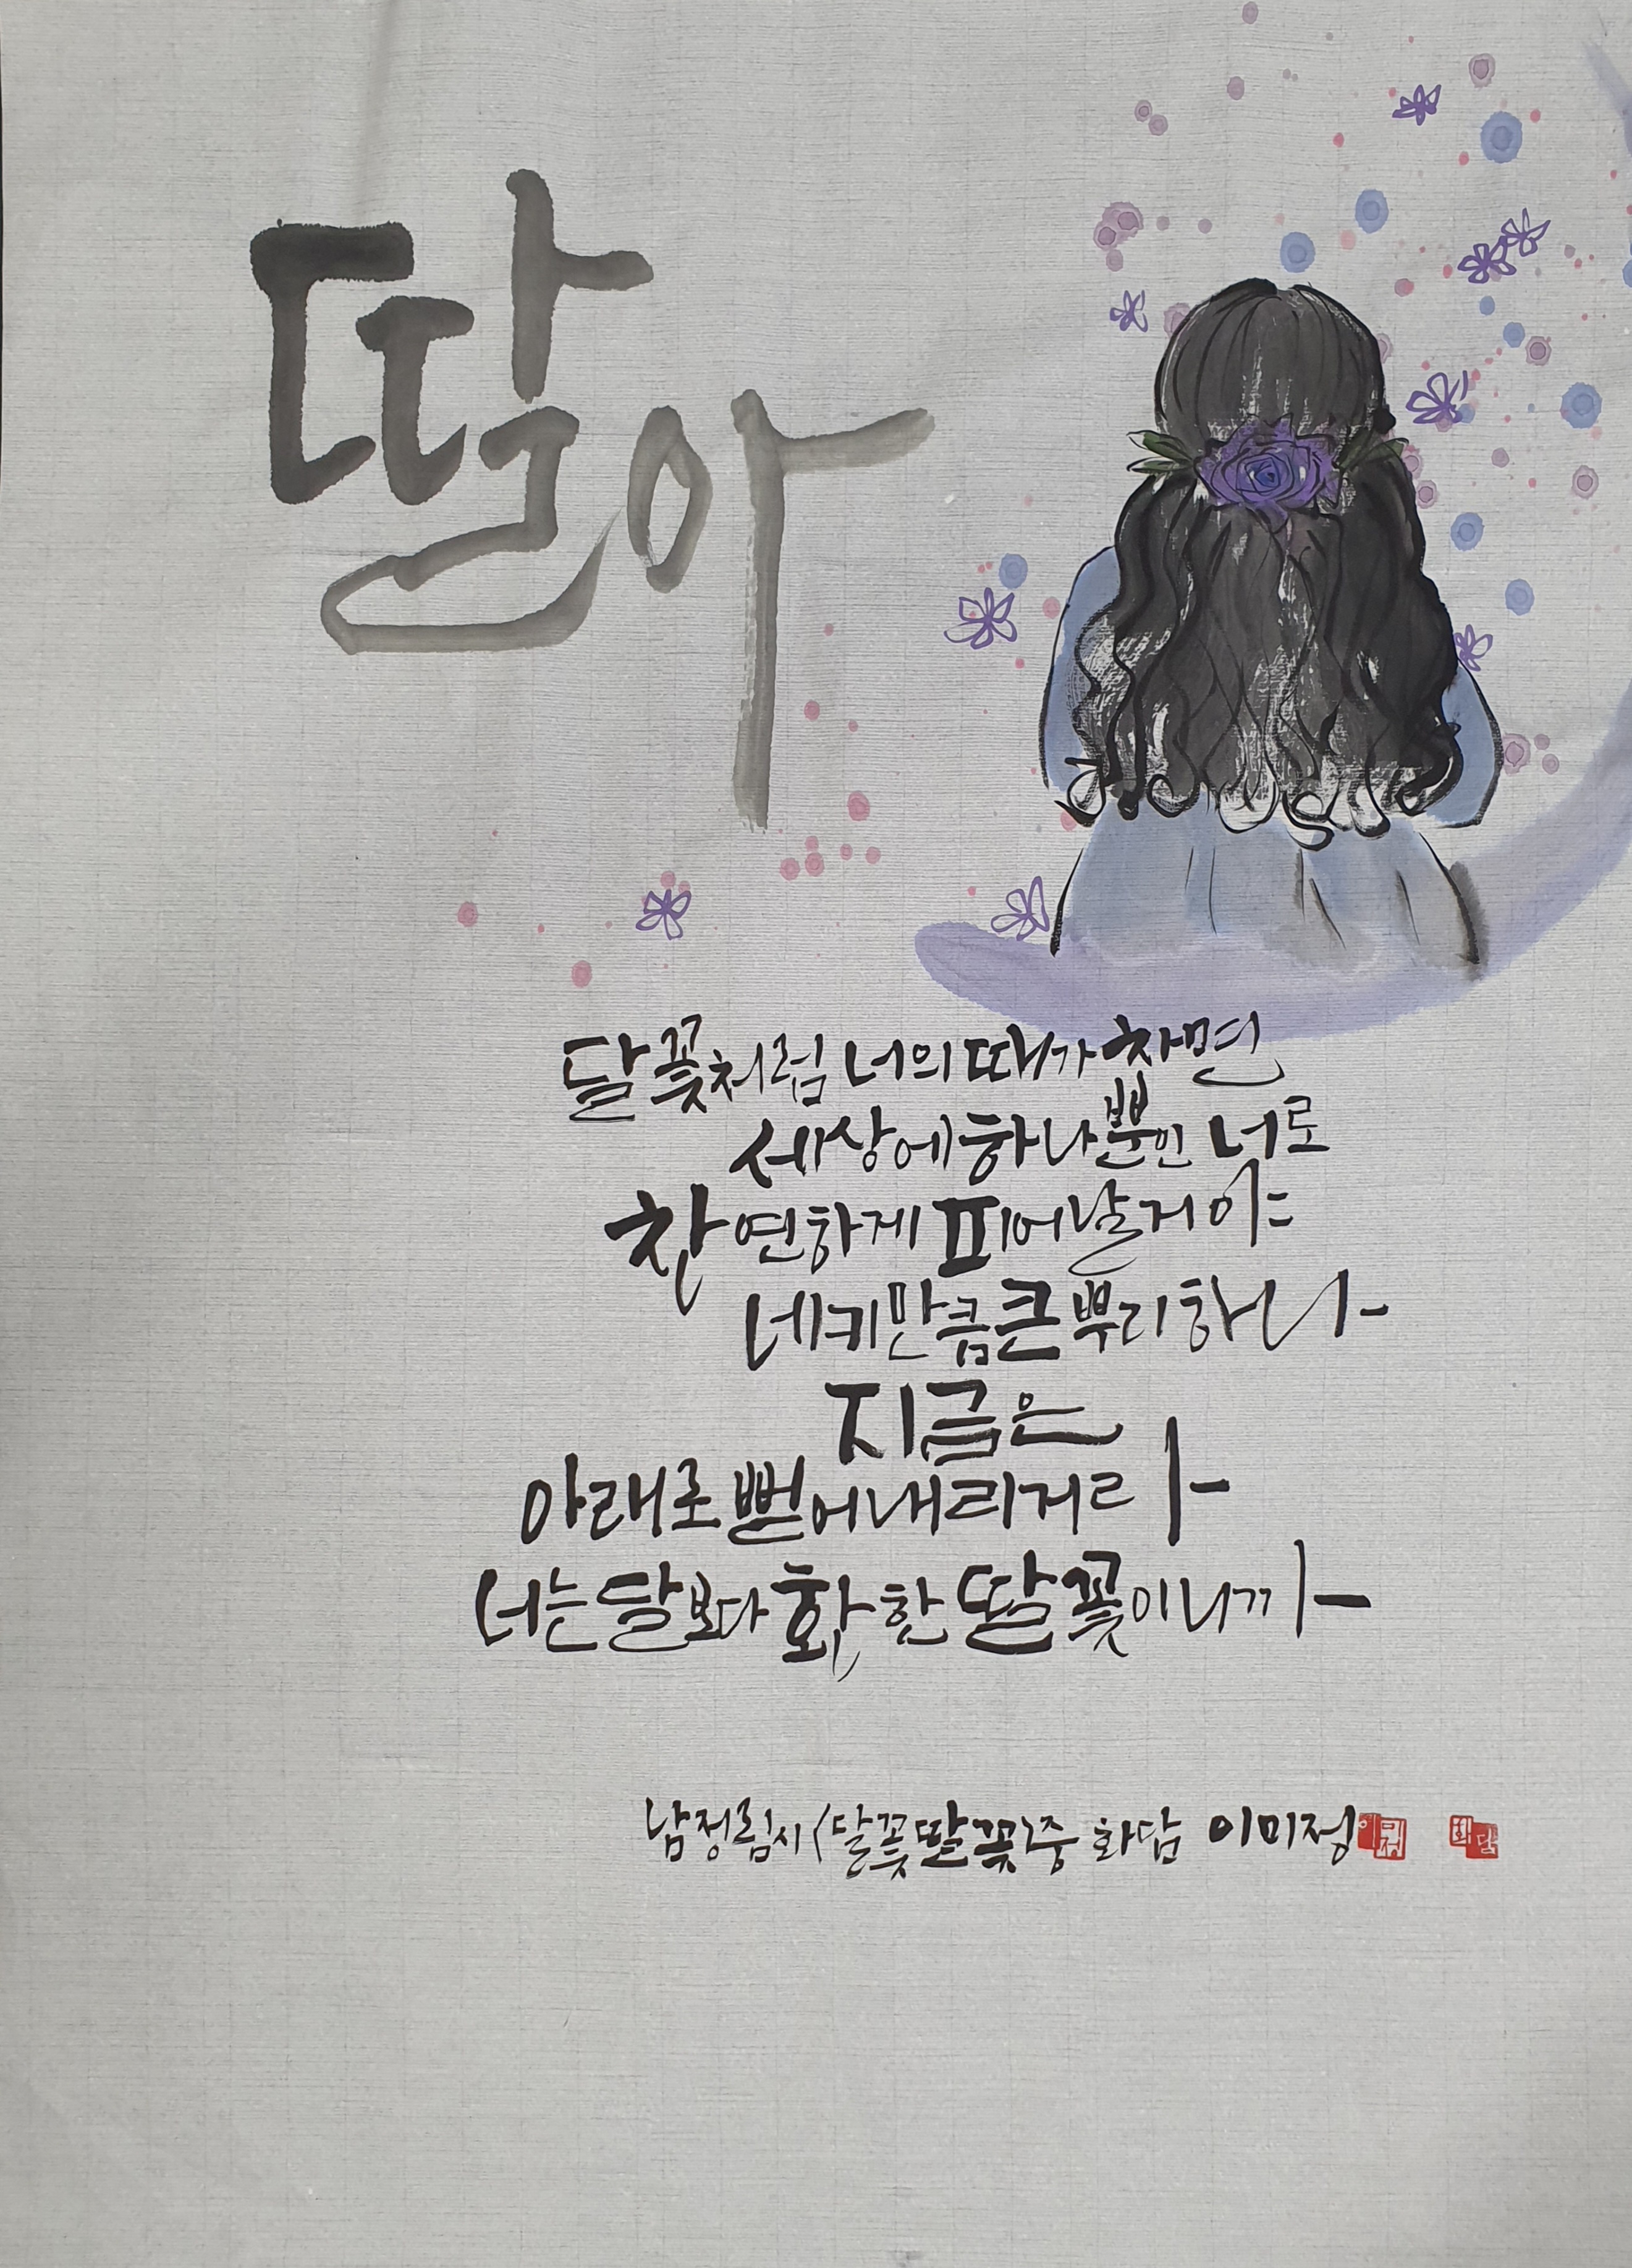 딸아
달꽃처럼 너의 때가 차면
세상에 하나뿐인 너로
찬연하게 피어날 거야
네 키만큼 큰 뿌리 하나
지금은
아래로 뻗어 내리거라
너는 달보다 환한 딸꽃이니까
남정림 시 〈달꽃 딸꽃〉 중 화담 이미정
화담